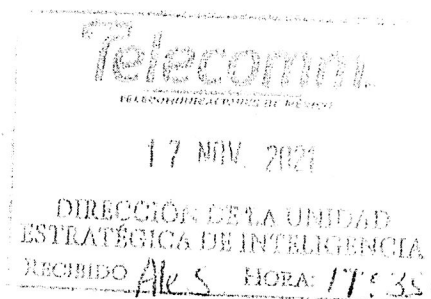 Telecomm
TELECOMUNICACIONES DE MÉXICO
17 NOV. 2021
DIRECCIÓN DE LA UNIDAD
ESTRATÉGICA DE INTELIGENCIA
RECIBIDO Ales HORA: 17:35